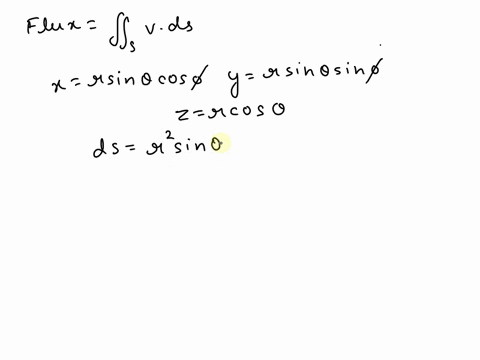 Flux = ∬_S v·ds
x = r sinθ cosϕ y = r sinθ sinϕ
z = r cosθ
ds = r² sinθ